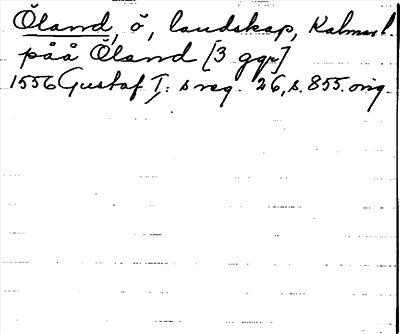 Öland, ö, landskap, Kalmar l.
påå Öland [3 ggr]
1556 Gustaf I:s reg. 26, s. 855. orig.